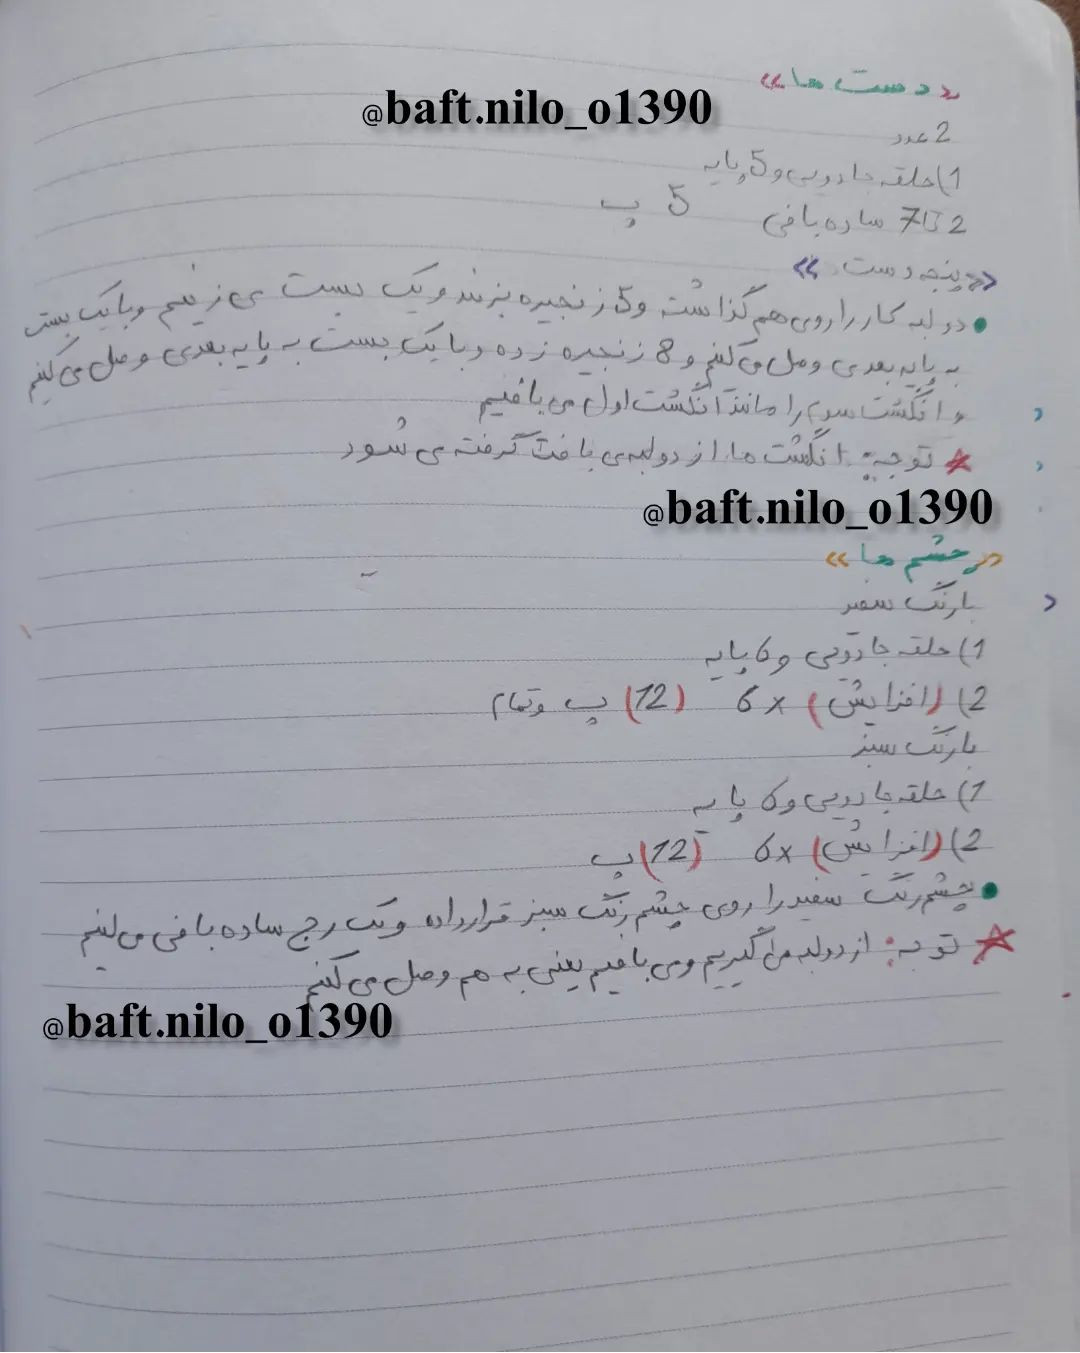 «دست ها»
@baft.nilo_o1390
2 عدد
1) حلقه جادویی و 5 پایه
2 تا 7 ساده بافی 5 پ
«پنجه دست»
• دو لبه کار را روی هم گذاشته و 5 زنجیره بزنید و یک بست می زنیم و با یک بست
به پایه بعدی وصل می کنیم و 8 زنجیره زده و با یک بست به پایه بعدی وصل می کنیم
و انگشت سوم را مانند انگشت اول می بافیم
* توجه: انگشت ها از دو لبه ی بافت گرفته می شود
@baft.nilo_o1390
«چشم ها»
با رنگ سفید
1) حلقه جادویی و 6 پایه
2) (افزایش) 6x (12) پ وتمام
با رنگ سبز
1) حلقه جادویی و 6 پایه
2) (افزایش) 6x (12) پ
• چشم رنگ سفید را روی چشم رنگ سبز قرار داده و یک رج ساده بافی می کنیم
* توجه: از دو لبه می گیریم و می بافیم یعنی به هم وصل می کنیم
@baft.nilo_o1390